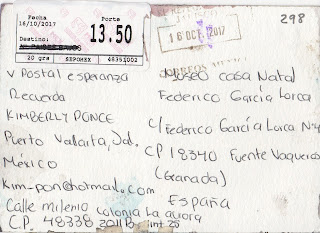 Fecha
16/10/2017
Porte
13.50
Destino:
20 grs SEPOMEX 48351002
16 OCT. 2017
CORREOS MEXICO
298
V Postal esperanza
Recuerda
KIMBERLY PONCE
Puerto Vallarta, Jal.
México
kim-pon@hotmail.com
Calle milenio colonia La aurora
C.P. 48338 2011B int 20
Museo Casa Natal
Federico García Lorca
C/Federico García Lorca Nº4
CP 18340 Fuente Vaqueros
(Granada)
España